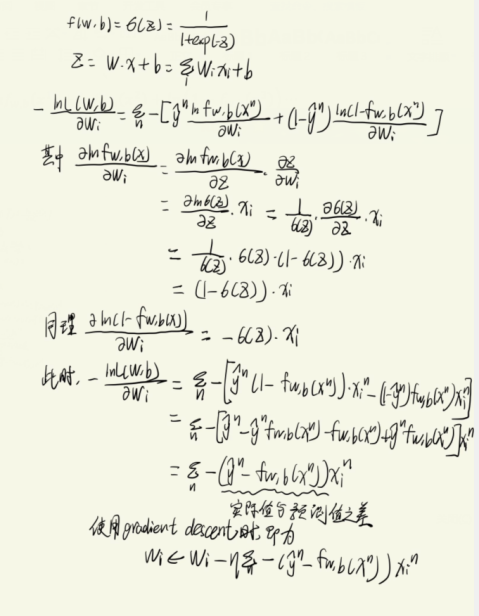 f(w,b)=σ(z)=1/(1+exp(-z))
z=w·x+b=Σ_i w_i x_i+b
-lnL(w,b)/∂w_i=Σ_n -[ŷ^n lnf_{w,b}(x^n)/∂w_i+(1-ŷ^n)ln(1-f_{w,b}(x^n))/∂w_i]
其中 ∂lnf_{w,b}(x)/∂w_i=∂lnf_{w,b}(z)/∂z·∂z/∂w_i
=∂lnσ(z)/∂z·x_i=1/σ(z)·∂σ(z)/∂z·x_i
=1/σ(z)·σ(z)·(1-σ(z))·x_i
=(1-σ(z))·x_i
同理 ∂ln(1-f_{w,b}(x))/∂w_i=-σ(z)·x_i
此时,-lnL(w,b)/∂w_i=Σ_n -[ŷ^n(1-f_{w,b}(x^n))·x_i^n-(1-ŷ^n)f_{w,b}(x^n)x_i^n]
=Σ_n -[ŷ^n-ŷ^n f_{w,b}(x^n)-f_{w,b}(x^n)+ŷ^n f_{w,b}(x^n)]x_i^n
=Σ_n -(ŷ^n-f_{w,b}(x^n))x_i^n
实际值与预测值之差
使用gradient descent时,即为
w_i←w_i-ηΣ_n -(ŷ^n-f_{w,b}(x^n))x_i^n